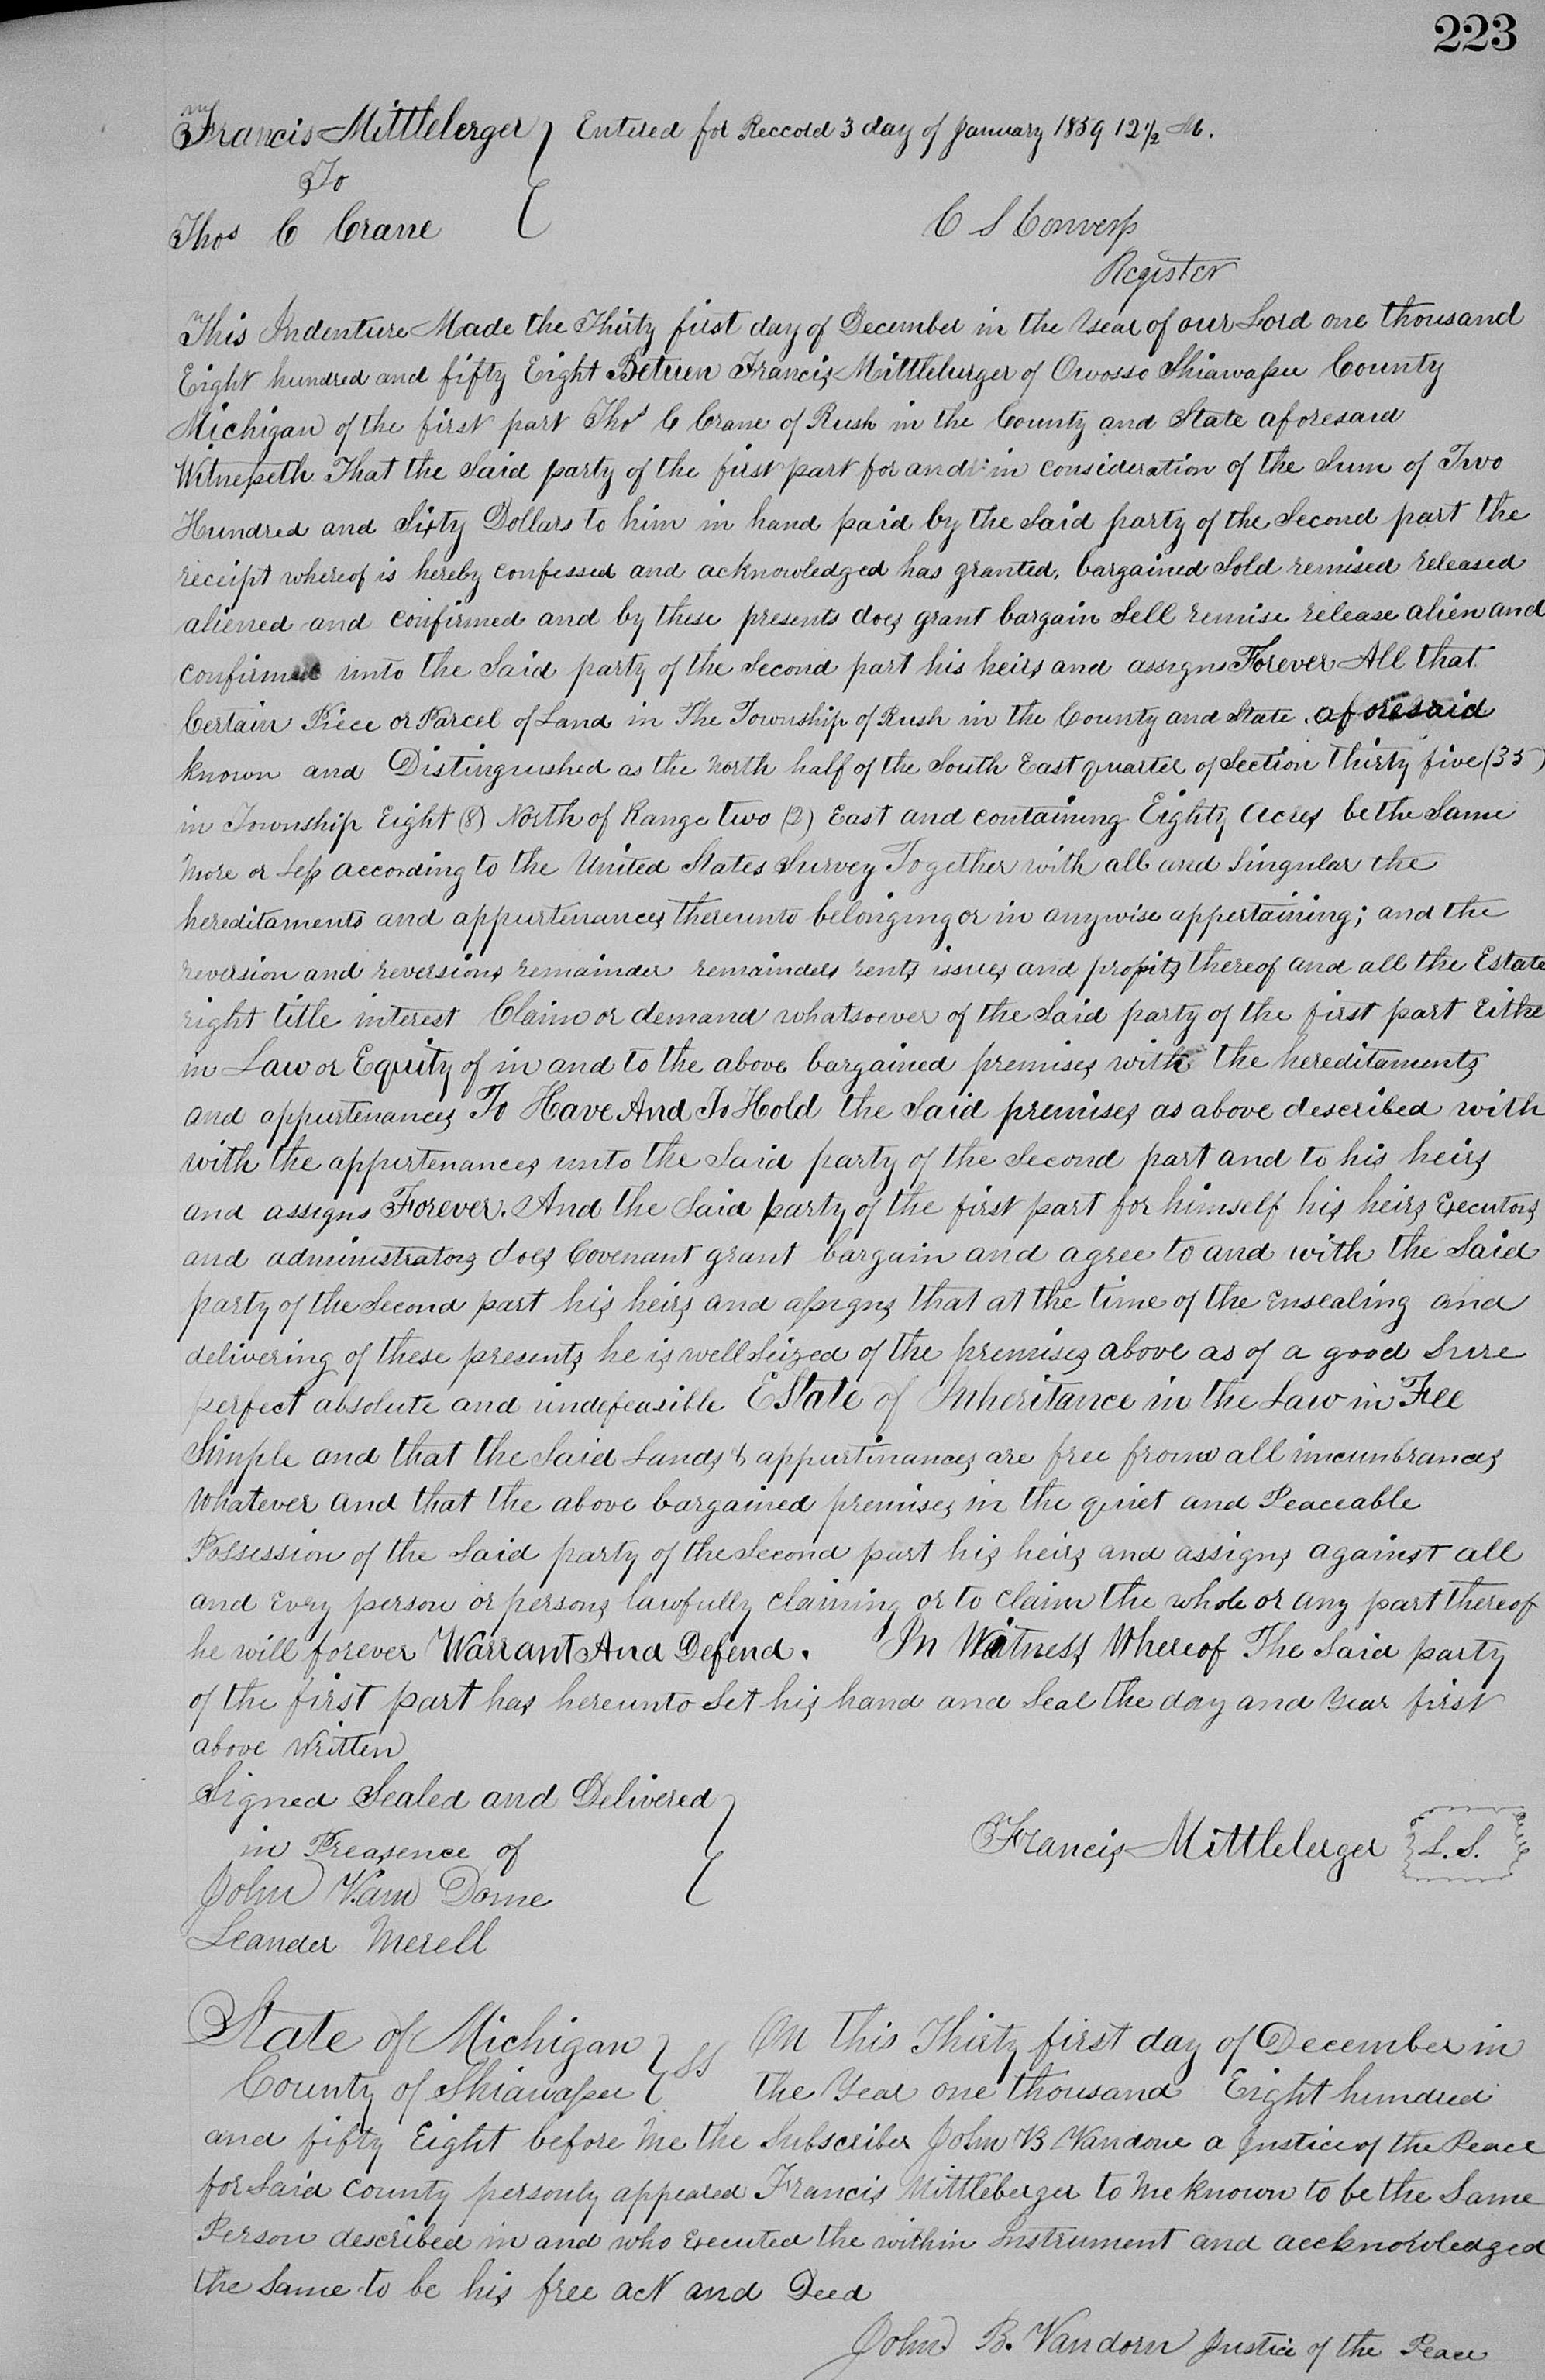 223
Francis Mittleberger } Entered for Reccord 3 day of January 1859 12 1/2 M.
To
Thos C Crane
C S Converss
Register
This Indenture Made the Thirty first day of December in the Year of our Lord one thousand
Eight hundred and fifty Eight Between Francis Mittleburger of Owosso Shiawassee County
Michigan of the first part Thos C Crane of Rush in the County and State aforesaid
Witnesseth That the Said party of the first part for and in consideration of the Sum of Two
Hundred and Sixty Dollars to him in hand paid by the Said party of the Second part the
receipt whereof is hereby confessed and acknowledged has granted, bargained Sold remised released
aliened and confirmed and by these presents does grant bargain Sell remise release alien and
confirm unto the Said party of the Second part his heirs and assigns Forever All that
Certain Piece or Parcel of Land in The Township of Rush in the County and State aforesaid
known and Distinguished as the North half of the South East quarter of Section thirty five (35)
in Township Eight (8) North of Range two (2) East and containing Eighty Acres be the Same
More or Less according to the United States Survey Together with all and Singular the
hereditaments and appurtenances thereunto belonging or in anywise appertaining; and the
reversion and reversions remainder remainders rents issues and profits thereof and all the Estate
right title interest Claim or demand whatsoever of the Said party of the first part Eithe
in Law or Equity of in and to the above bargained premises with the hereditaments
and appurtenances To Have And To Hold the Said premises as above described with
with the appurtenances unto the Said party of the Second part and to his heirs
and assigns Forever. And the Said party of the first part for himself his heirs Executors
and administrators does Covenant grant bargain and agree to and with the Said
party of the Second part his heirs and assigns that at the time of the ensealing and
delivering of these presents he is well Seized of the premises above as of a good Sure
perfect absolute and indefeasible EState of Inheritance in the Law in Fee
Simple and that the Said Lands & appurtinances are free from all incumbrances
Whatever and that the above bargained premises in the quiet and Peaceable
Possession of the Said party of the Second part his heirs and assigns against all
and Evry person or persons lawfully claiming or to claim the whole or any part thereof
he will forever Warrant And Defend. In Witness Whereof The Said party
of the first part has hereunto Set his hand and Seal the day and Year first
above Written
Signed Sealed and Delivered
in Preasence of
Francis Mittleberger L.S.
John Van Dorne
Leander Merell
State of Michigan } SS On this Thirty first day of December in
County of Shiawassee the Year one thousand Eight hundred
and fifty Eight before Me the Subscriber John B Vandone a Justice of the Peace
for Said County personly appeared Francis Mittleberger to Me known to be the Same
Person described in and who Executed the within Instrument and accknowledged
the Same to be his free act and Deed
John B. Vandorn Justice of the Peace